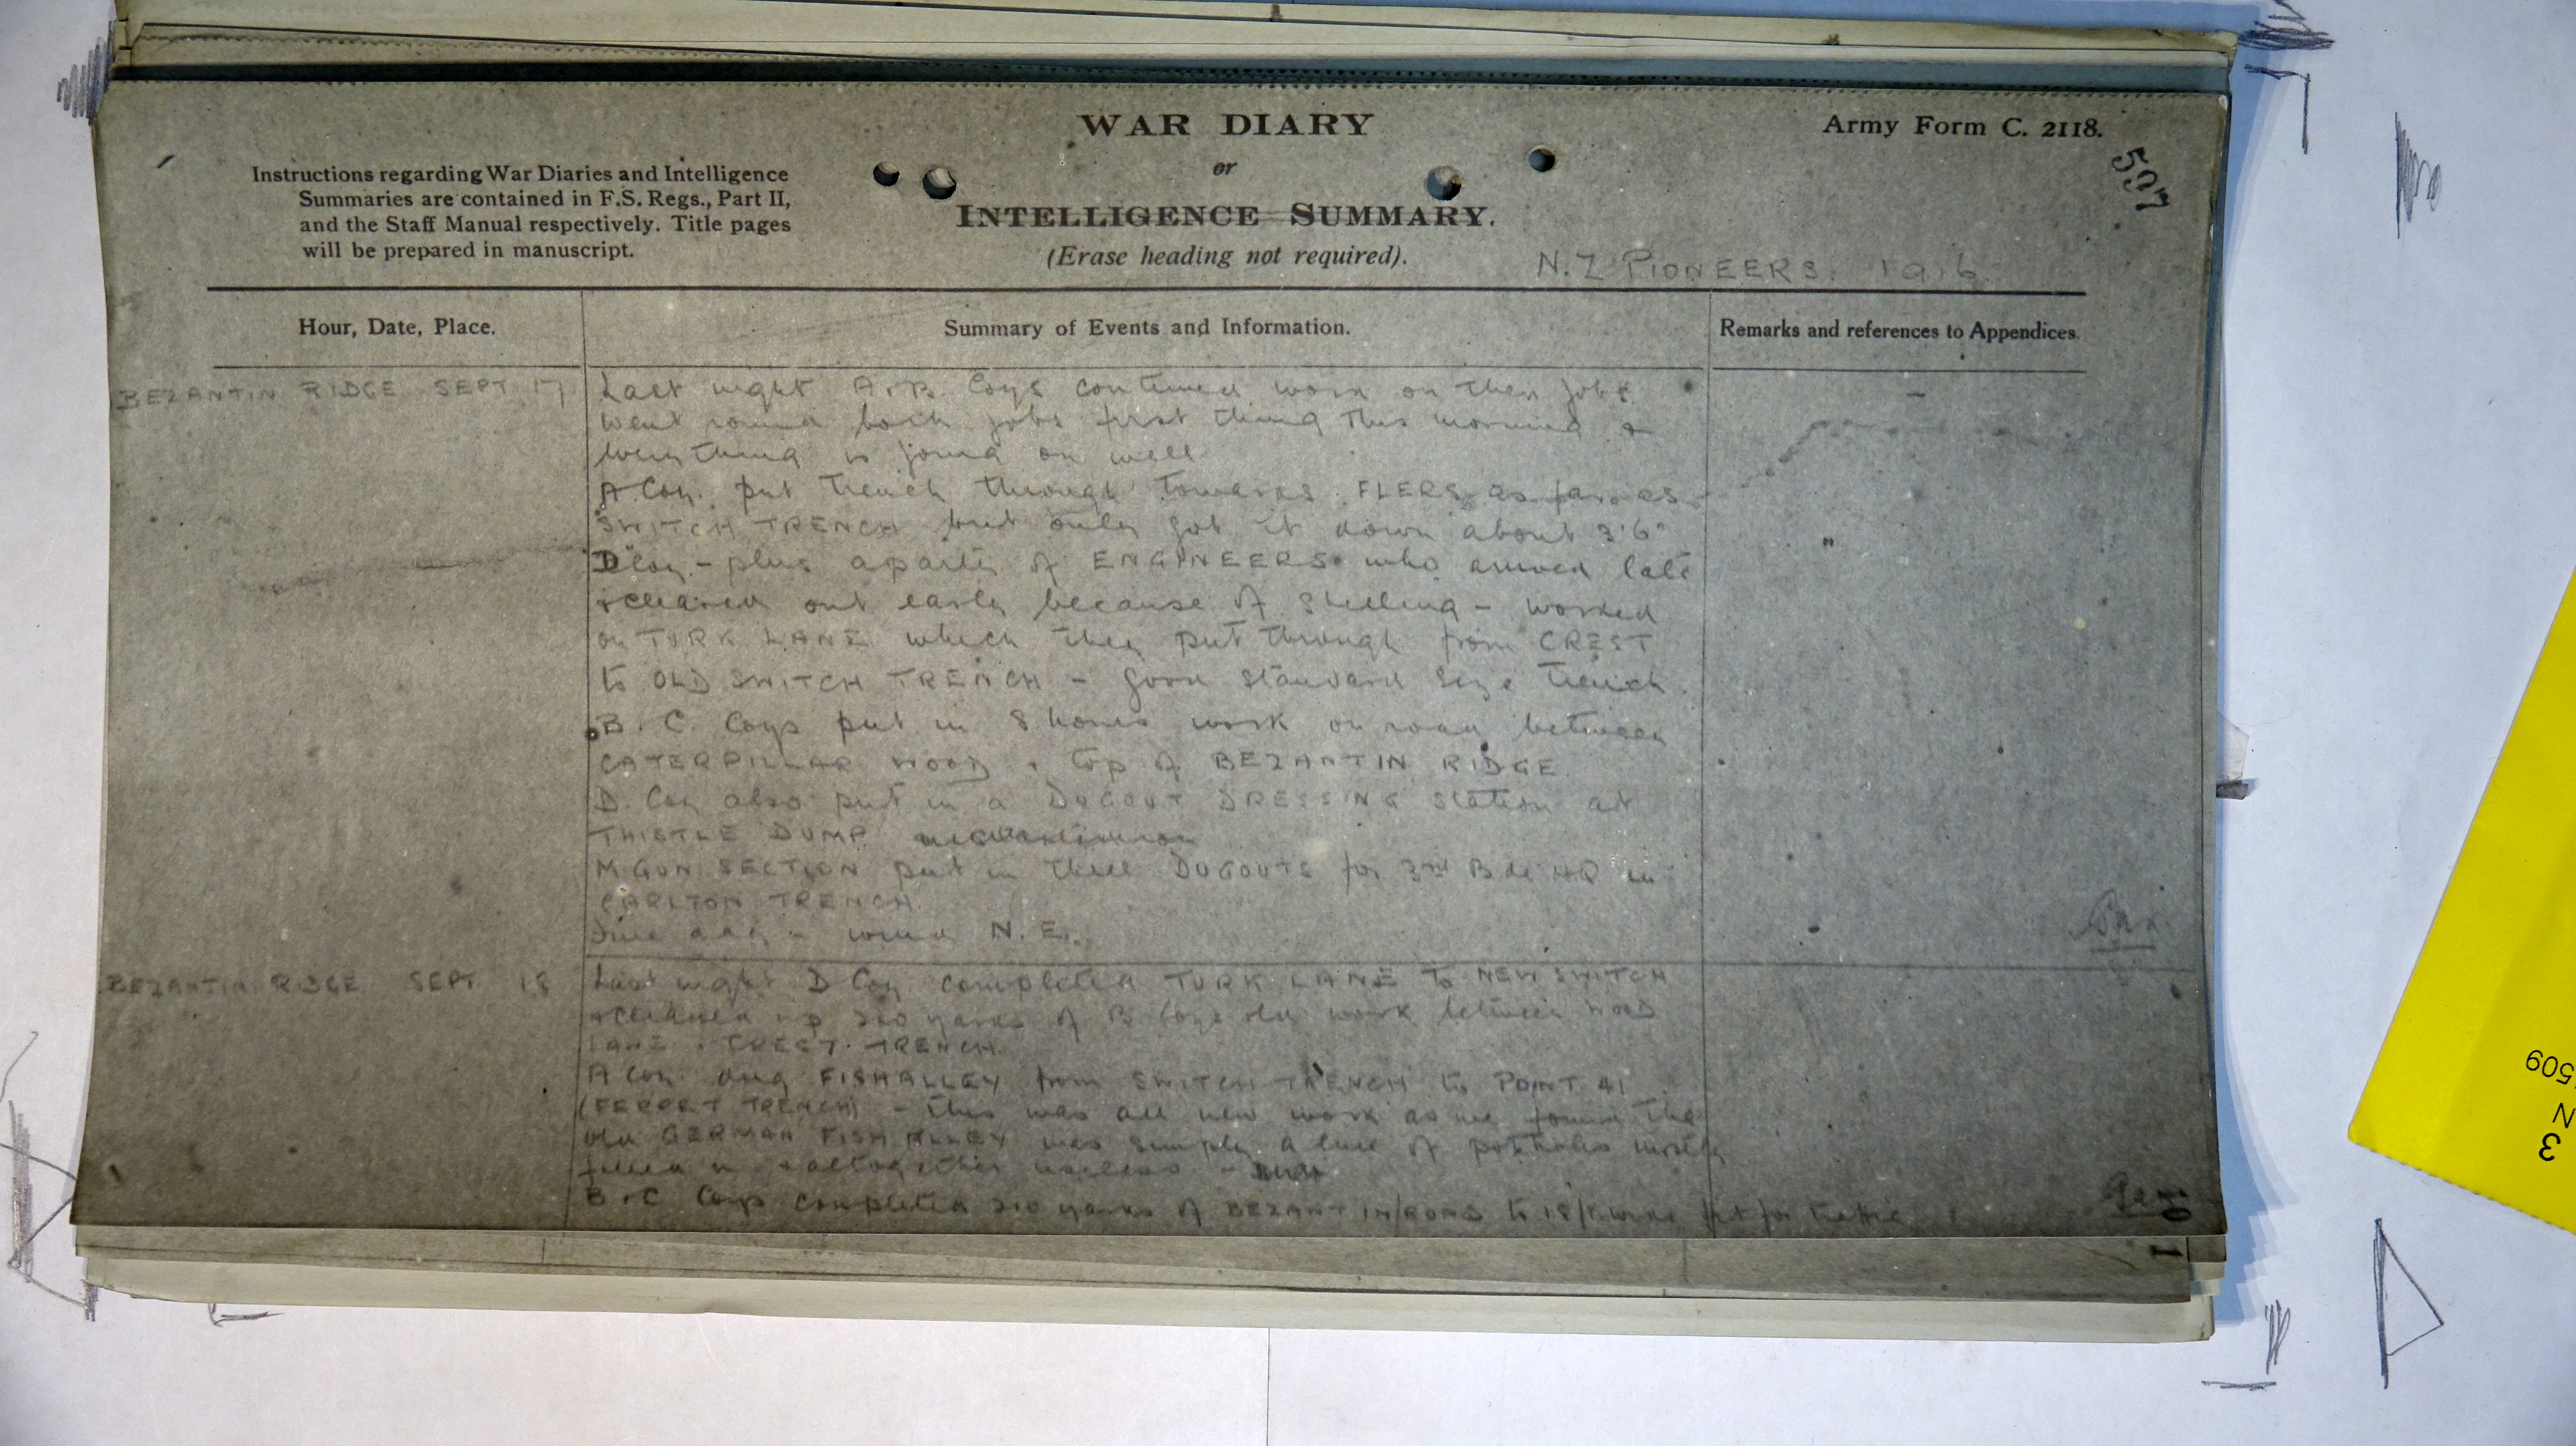 WAR DIARY
or
INTELLIGENCE SUMMARY.
(Erase heading not required).
Army Form C. 2118.
597
Instructions regarding War Diaries and Intelligence
Summaries are contained in F.S. Regs., Part II,
and the Staff Manual respectively. Title pages
will be prepared in manuscript.
N.Z PIONEERS. 1916
Hour, Date, Place.
Summary of Events and Information.
Remarks and references to Appendices.
BEZANTIN RIDGE SEPT 17
Last night A & B. Coys continued work on their jobs.
Went round both jobs first thing this morning &
everything is going on well
A Coy. put trench through towards FLERS as far as
SWITCH TRENCH but only got it down about 3'6"
D Coy - plus a party of ENGINEERS who arrived late
& cleared out early because of shelling - worked
on TURK LANE which they put through from CREST
to OLD SWITCH TRENCH - good standard size trench.
B. C. Coys put in 8 hours work on road between
CATERPILLAR WOOD & top of BEZANTIN RIDGE
D. Coy also put in a DUGOUT DRESSING station at
THISTLE DUMP
M GUN SECTION put in three DUGOUTS for 3rd Bde HQ in
CARLTON TRENCH
Fine day - wind N.E.
BEZANTIN RIDGE SEPT 18
Last night D Coy completed TURK LANE to NEW SWITCH
& cleaned up 200 yards of B Coys old work between WOOD
LANE & CREST TRENCH
A Coy dug FISH ALLEY from SWITCH TRENCH to POINT 41
(FERRET TRENCH) - this was all new work as we found the
old GERMAN FISH ALLEY was simply a line of potholes mostly
filled in & altogether useless -
B & C Coys completed 210 yards of BEZANTIN ROAD to 18 ft fit for traffic
509
N
3